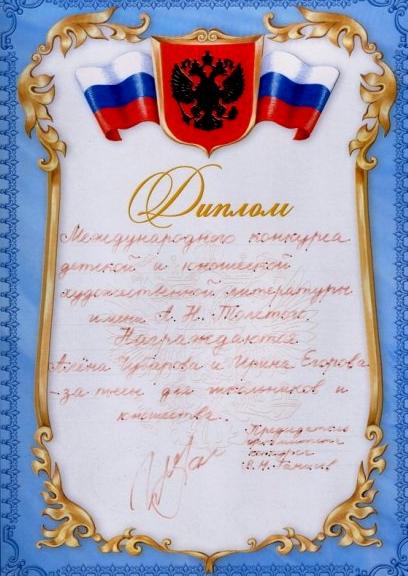 Диплом
Международного конкурса
детской и юношеской
художественной литературы
имени А. Н. Толстого.
Награждаются
Алёна Чубарова и Ирина Егорова
за пьесы для школьников и
юношества.
Председатель
конкурса